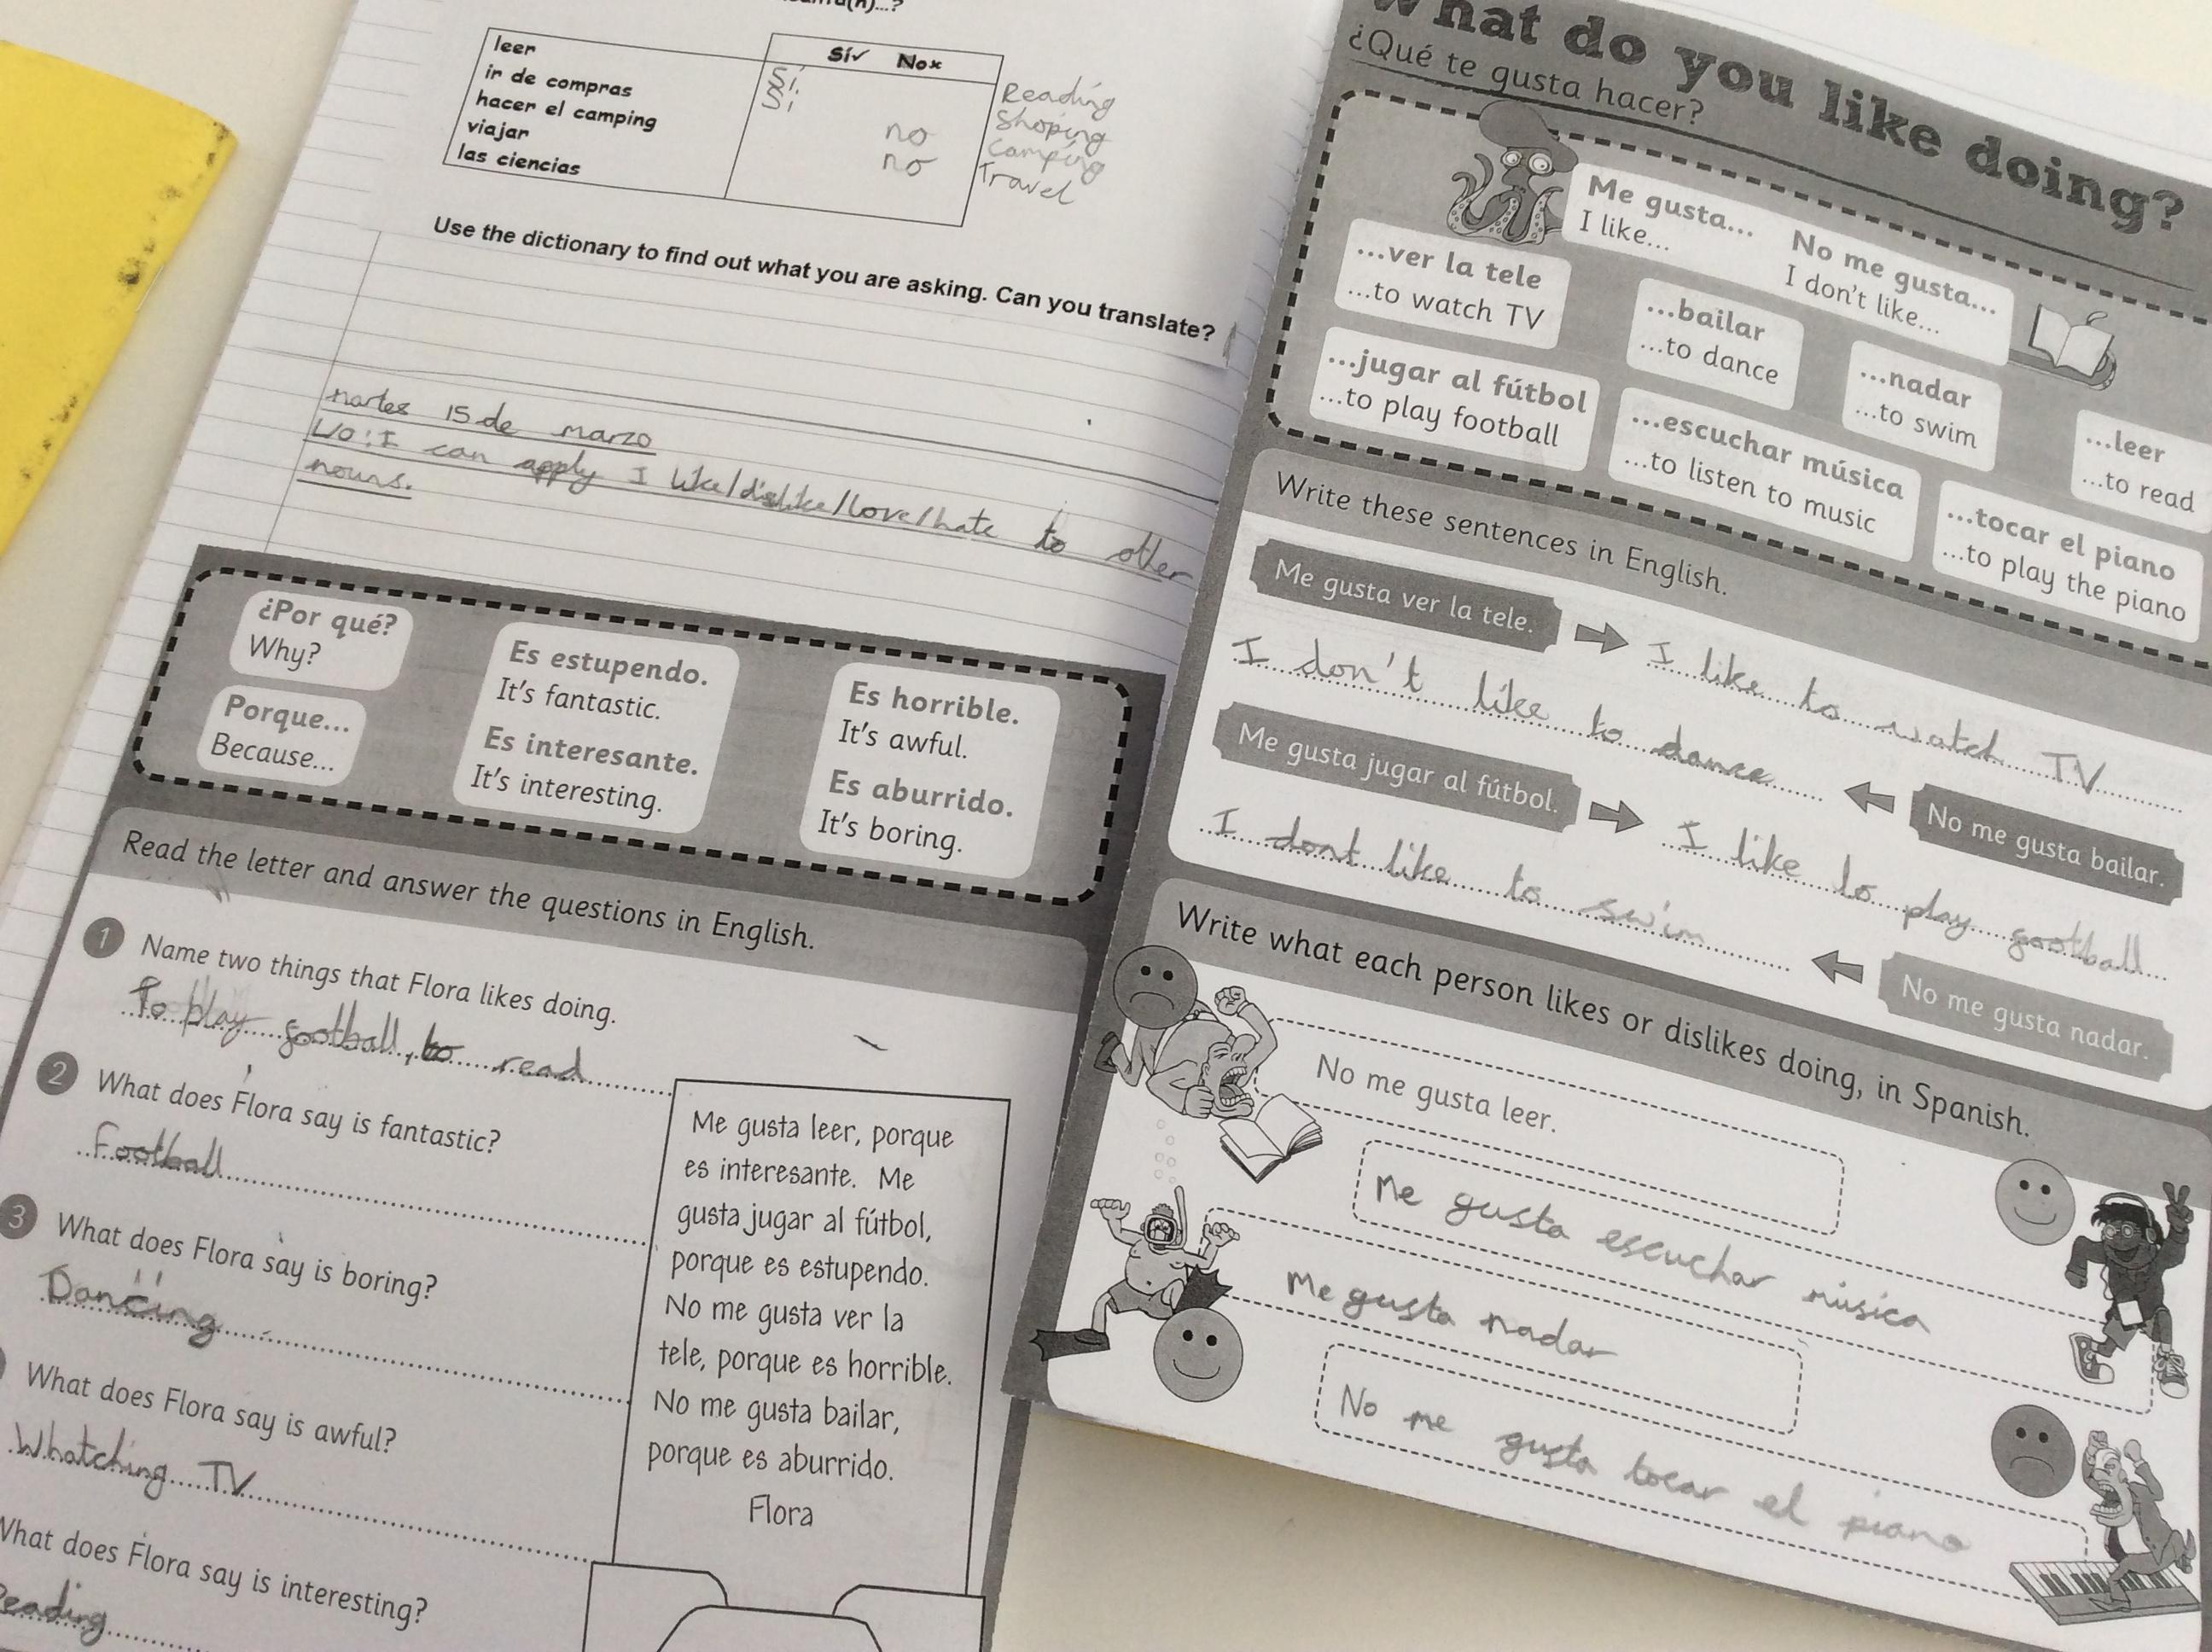 leer
ir de compras
hacer el camping
viajar
las ciencias
Sí✓ No×
Sí
Sí
no
no
Reading
Shoping
Camping
Travel
Use the dictionary to find out what you are asking. Can you translate?
martes 15 de marzo
LO: I can apply I like/dislike/love/hate to other
nouns.
¿Por qué?
Why?
Porque...
Because...
Es estupendo.
It's fantastic.
Es interesante.
It's interesting.
Es horrible.
It's awful.
Es aburrido.
It's boring.
Read the letter and answer the questions in English.
1 Name two things that Flora likes doing.
To play football, to read
2 What does Flora say is fantastic?
Football
3 What does Flora say is boring?
Dancing
What does Flora say is awful?
Whatching TV
What does Flora say is interesting?
Reading
Me gusta leer, porque
es interesante. Me
gusta jugar al fútbol,
porque es estupendo.
No me gusta ver la
tele, porque es horrible.
No me gusta bailar,
porque es aburrido.
Flora
What do you like doing?
¿Qué te gusta hacer?
Me gusta...
I like...
No me gusta...
I don't like...
...ver la tele
...to watch TV
...bailar
...to dance
...nadar
...to swim
...leer
...to read
...jugar al fútbol
...to play football
...escuchar música
...to listen to music
...tocar el piano
...to play the piano
Write these sentences in English.
Me gusta ver la tele.
I like to watch TV
I don't like to dance
No me gusta bailar.
Me gusta jugar al fútbol.
I like to play football
I dont like to swim
No me gusta nadar.
Write what each person likes or dislikes doing, in Spanish.
No me gusta leer.
Me gusta escuchar música
Me gusta nadar
No me gusta tocar el piano